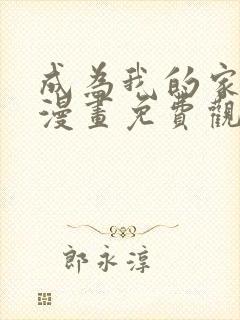 成為我的家
漫畫免費觀
郎永淳